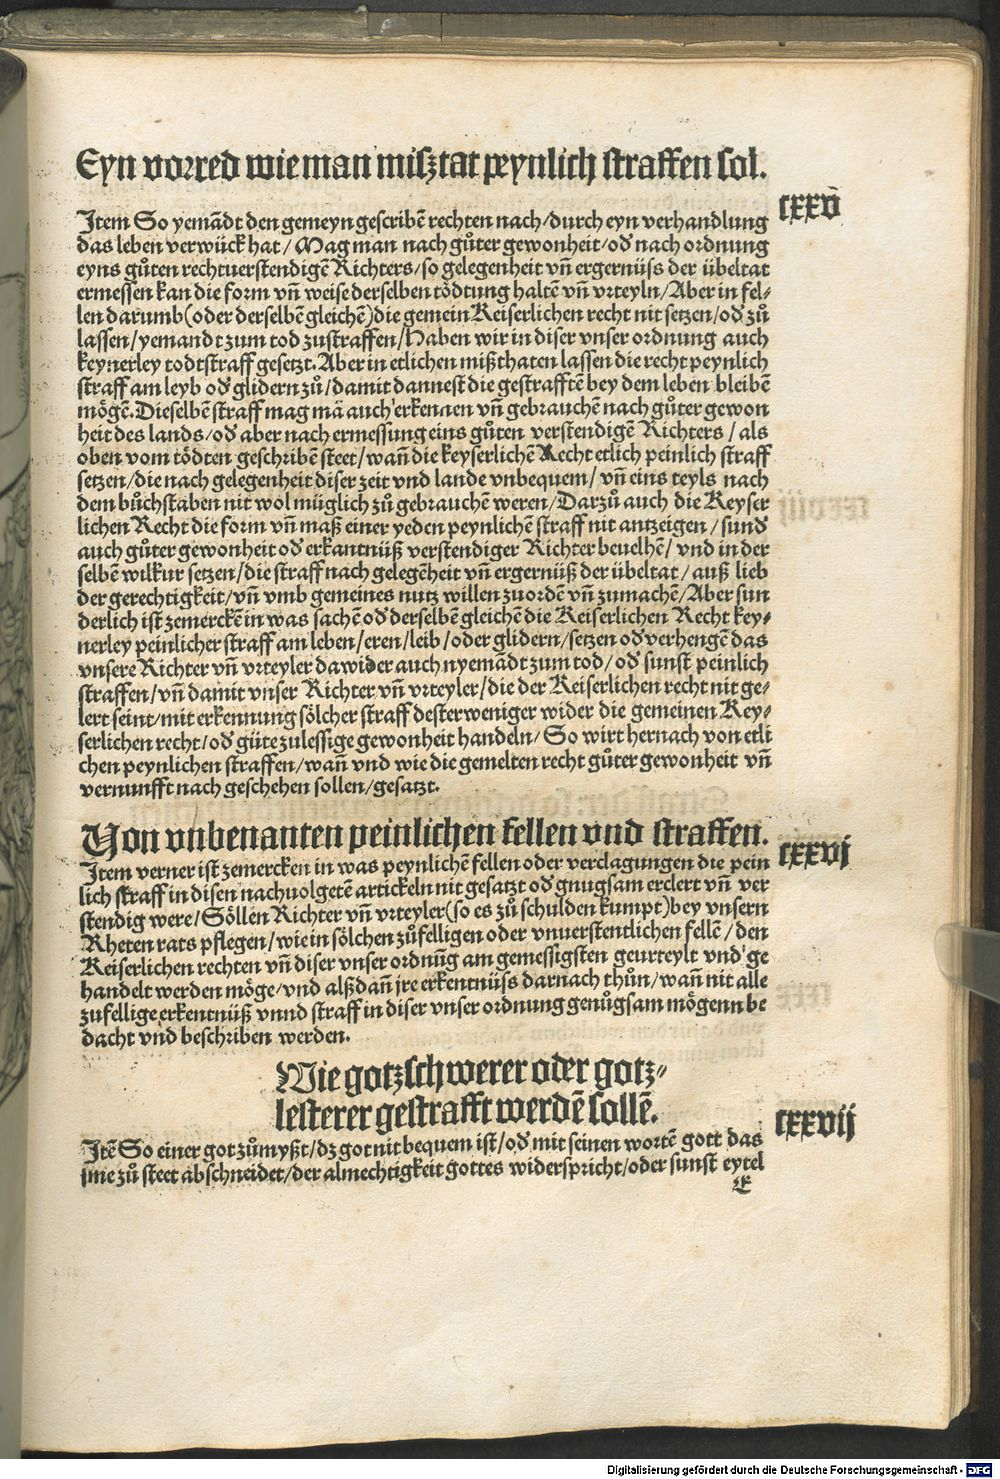 Eyn vorred wie man misztat peynlich straffen sol.
cxxv
Item So yemādt den gemeyn gescribē rechten nach/durch eyn verhandlung
das leben verwückt hat/ Mag man nach gůter gewonheit/od̕ nach ordnung
eyns gůten rechtuerstendigē Richters/so gelegenheit vn̄ ergernüss der übeltat
ermessen kan die form vn̄ weise derselben tödtung haltē vn̄ vrteyln/Aber in fel⸗
len darumb(oder derselbē gleichē)die gemein Keiserlichen recht nit setzen/od̕ zů
lassen/yemandt zum tod zustraffen/Haben wir in diser vnser ordnung auch
keynerley todtstraff gesetzt.Aber in etlichen mißthaten lassen die recht peynlich
straff am leyb od̕ glidern zů/damit dannest die gestrafftē bey dem leben bleibē
mögē.Dieselbē straff mag mā auch erkennen vn̄ gebrauchē nach gůter gewon
heit des lands/od̕ aber nach ermessung eins gůten verstendigē Richters/als
oben vom tödten geschribē steet/wan̄ die keyserlichē Recht etlich peinlich straff
setzen/die nach gelegenheit diser zeit vnd lande vnbequem/ vn̄ eins teyls nach
dem bůchstaben nit wol müglich zů gebrauchē weren/Darzů auch die Keyser
lichen Recht die form vn̄ maß einer yeden peynlichē straff nit antzeigen/sund̕
auch gůter gewonheit od̕ erkantnüß verstendiger Richter beuelhē/ vnd in der
selbē wilkur setzen/die straff nach gelegēheit vn̄ ergernüß der übeltat/auß lieb
der gerechtigkeit/vn̄ vmb gemeines nutz willen zuordē vn̄ zumachē/Aber sun
derlich ist zemerckē in was sachē od̕ derselbē gleichē die Keiserlichen Recht key⸗
nerley peinlicher straff am leben/eren/leib/oder glidern/setzen od̕ verhengē das
vnsere Richter vn̄ vrteyler dawider auch nyemādt zum tod/od̕ sunst peinlich
straffen/vn̄ damit vnser Richter vn̄ vrteyler/die der Keiserlichen recht nit ge⸗
lert seint/mit erkennung sölcher straff desterweniger wider die gemeinen Key⸗
serlichen recht/od̕ güte zulessige gewonheit handeln/So wirt hernach von etli
chen peynlichen straffen/wan̄ vnd wie die gemelten recht gůter gewonheit vn̄
vernunfft nach geschehen sollen/gesatzt.
Von vnbenanten peinlichen fellen vnd straffen.
cxxvj
Item verner ist zemercken in was peynlichē fellen oder verclagungen die pein
lich straff in disen nachuolgetē artickeln nit gesatzt od̕ gnugsam erclert vn̄ ver
stendig were/Söllen Richter vn̄ vrteyler(so es zů schulden kumpt)bey vnsern
Rheten rats pflegen/wie in sölchen zůfelligen oder vnuerstentlichen fellē/den
Keiserlichen rechten vn̄ diser vnser ordnūg am gemessigsten geurteylt vnd ge
handelt werden möge/vnd alßdan̄ jre erkentnüss darnach thůn/wan̄ nit alle
zufellige erkentnüß vnnd straff in diser vnser ordnung genůgsam mögenn be
dacht vnd beschriben werden.
Wie gotzschwerer oder gotz⸗
lesterer gestrafft werdē sollē.
cxxvij
Itē So einer got zůmyßt/dz got nit bequem ist/od̕ mit seinen wortē gott das
jme zů steet abschneidet/der almechtigkeit gottes widerspricht/oder sunst eytel
E
Digitalisierung gefördert durch die Deutsche Forschungsgemeinschaft - DFG